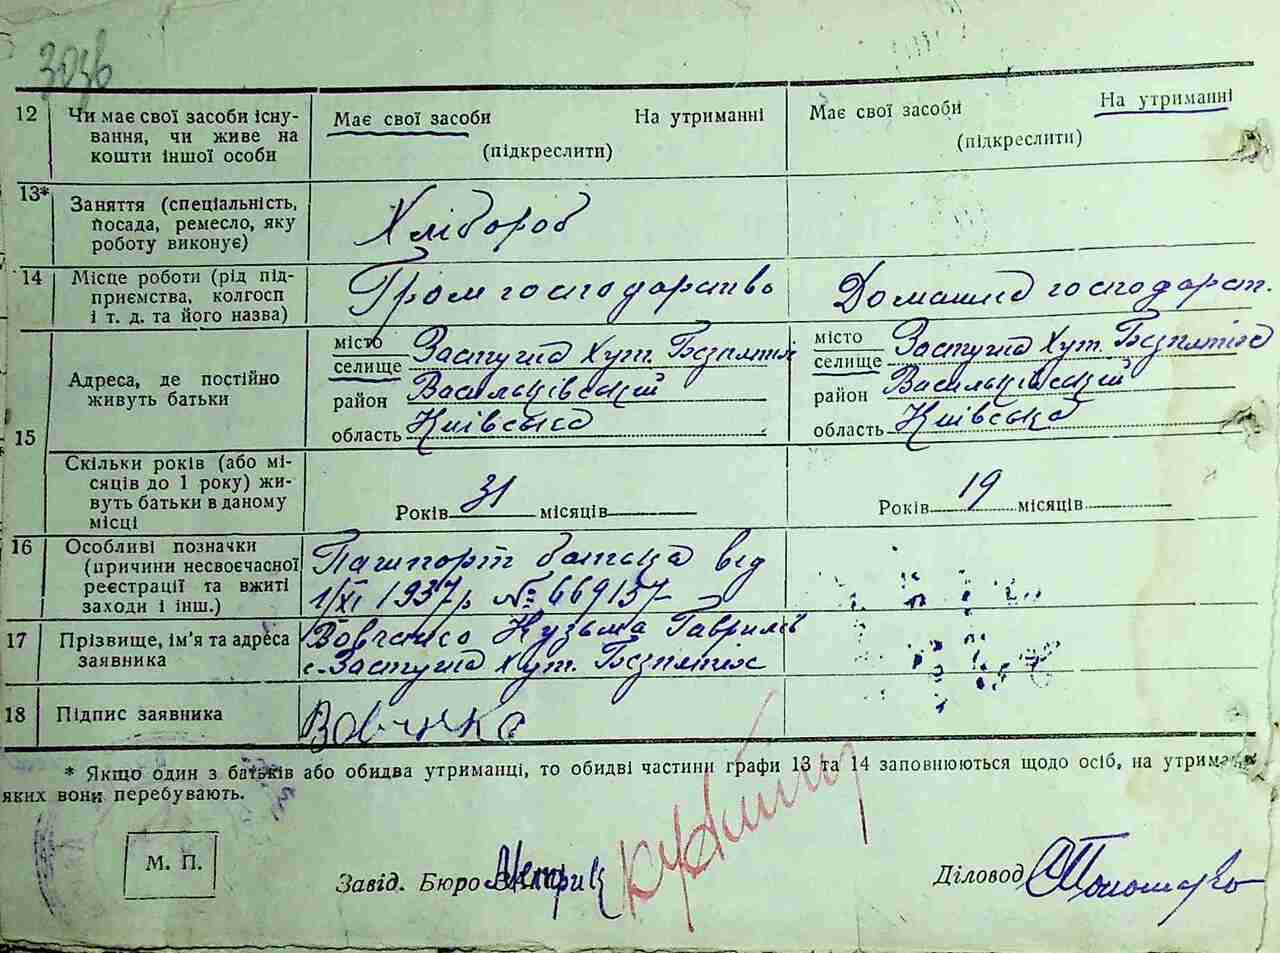 3036
12 Чи має свої засоби існу-
вання, чи живе на
кошти іншої особи
Має свої засоби На утриманні
(підкреслити)
Має свої засоби На утриманні
(підкреслити)
13* Заняття (спеціальність,
посада, ремесло, яку
роботу виконує)
Хлібороб
14 Місце роботи (рід під-
приємства, колгосп
і т. д. та його назва)
Гром господарство
Домашнє господарст.
15
Адреса, де постійно
живуть батьки
місто
селище Застугна Хут. Безпятне
район Васильківський
область Київська
місто
селище Застугна Хут. Безпятне
район Васильківський
область Київська
Скільки років (або мі-
сяців до 1 року) жи-
вуть батьки в даному
місці
Років 31 місяців
Років 19 місяців
16 Особливі позначки
(причини несвоєчасної
реєстрації та вжиті
заходи і інш.)
Пашпорт батька від
1/XI 1937р № 669157
17 Прізвище, ім'я та адреса
заявника
Вовченко Кузьма Гаврилів
с. Застугна Хут. Безпятне
18 Підпис заявника
* Якщо один з батьків або обидва утриманці, то обидві частини графи 13 та 14 заповнюються щодо осіб, на утриман
яких вони перебувають.
М. П.
Завід. Бюро
Діловод Пономарко